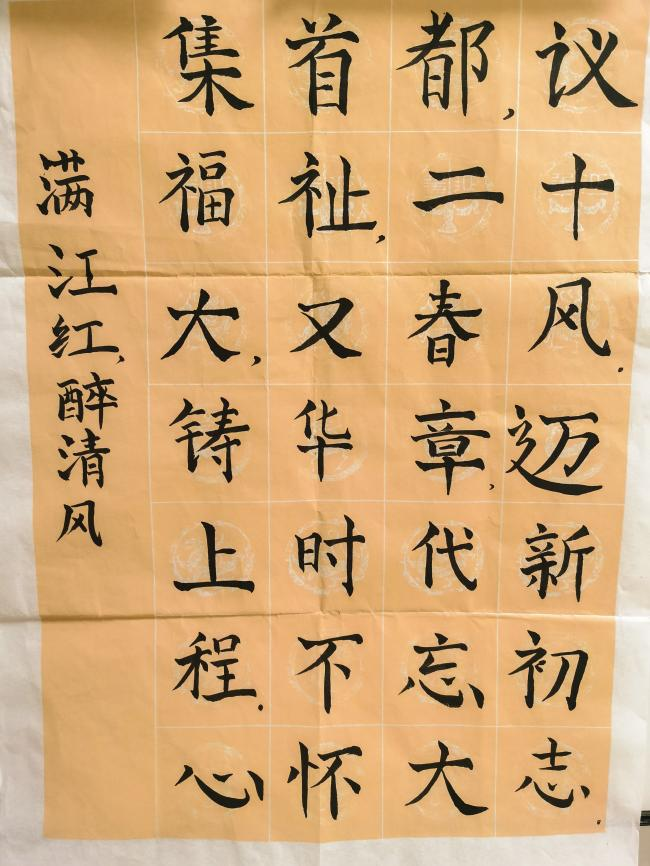 满江红,醉清风
集首都,议
福祉,二十
大,又春风.
铸华章,迈
上时代新
程.不忘初
心怀大志